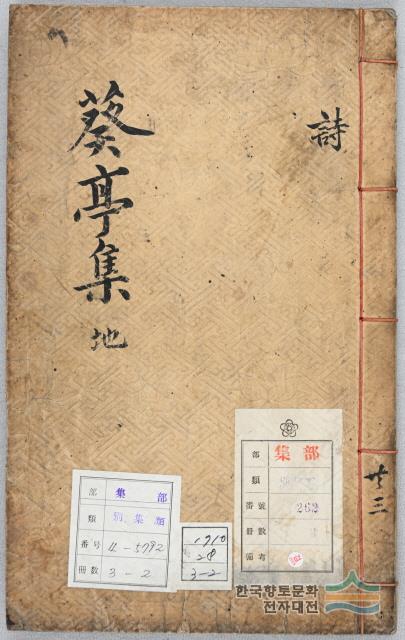 詩
葵亭集
地
共三
部 集部
類 別集類
番号 4-5792
冊數 3-2
1710
28
3-2
部 集部
類
番號 262
冊數
備考
한국향토문화
전자대전